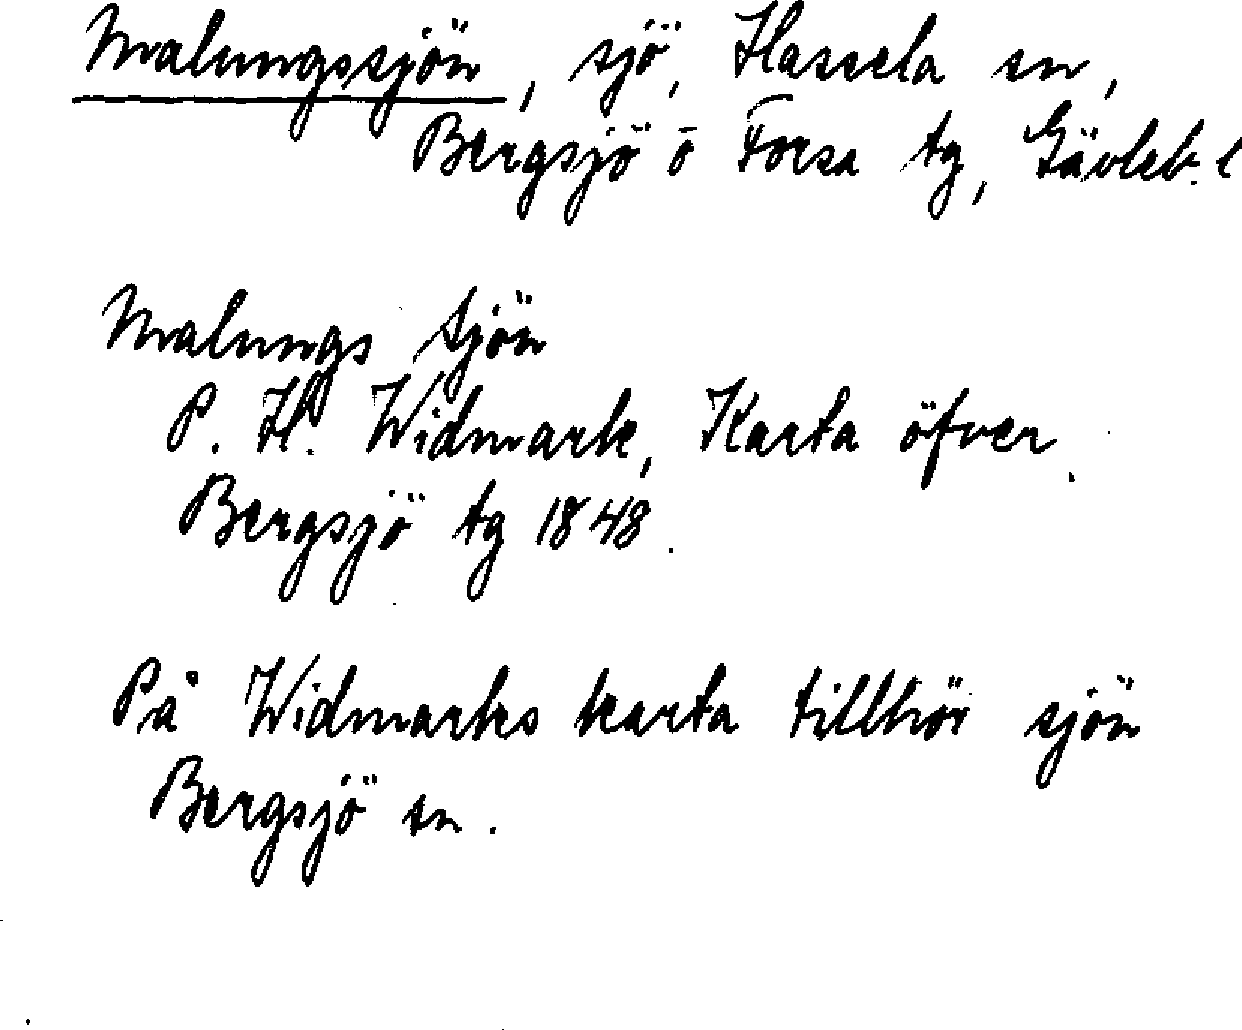 Malungssjön, sjö, Hassela sn,
Bergsjö o Forsa tg, Gävleb. l
Malungs sjön
P. H. Widmark, Karta öfver
Bergsjö tg 1848.
På Widmarks karta tillhör sjön
Bergsjö sn.